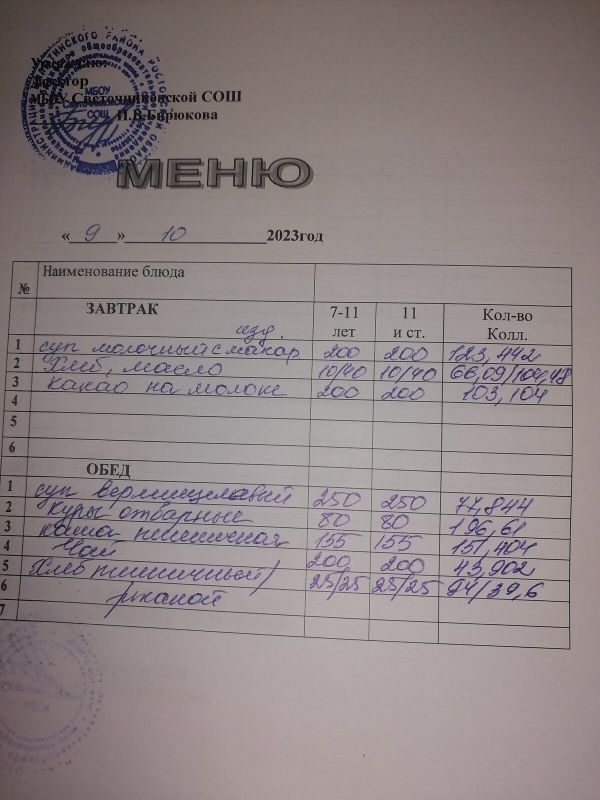 Утверждаю:
Директор
МБОУ Светочниковской СОШ
И.В.Бирюкова
МБОУ
СОШ
МЕНЮ
« 9 » 10 2023год
№ Наименование блюда
ЗАВТРАК 7-11 лет 11 и ст. Кол-во Колл.
изд.
1 суп молочный с макар 200 200 123,442
2 Хлеб, масло 10/40 10/40 66,09/104,48
3 какао на молоке 200 200 103,104
4
5
6
ОБЕД
1 суп вермишелевый 250 250 77,844
2 куры отварные 80 80 196,61
3 каша пшеничная 155 155 151,404
4 Чай
5 200 200 43,902
Хлеб пшеничный/ 25/25 25/25 94/39,6
6 ржаной
7